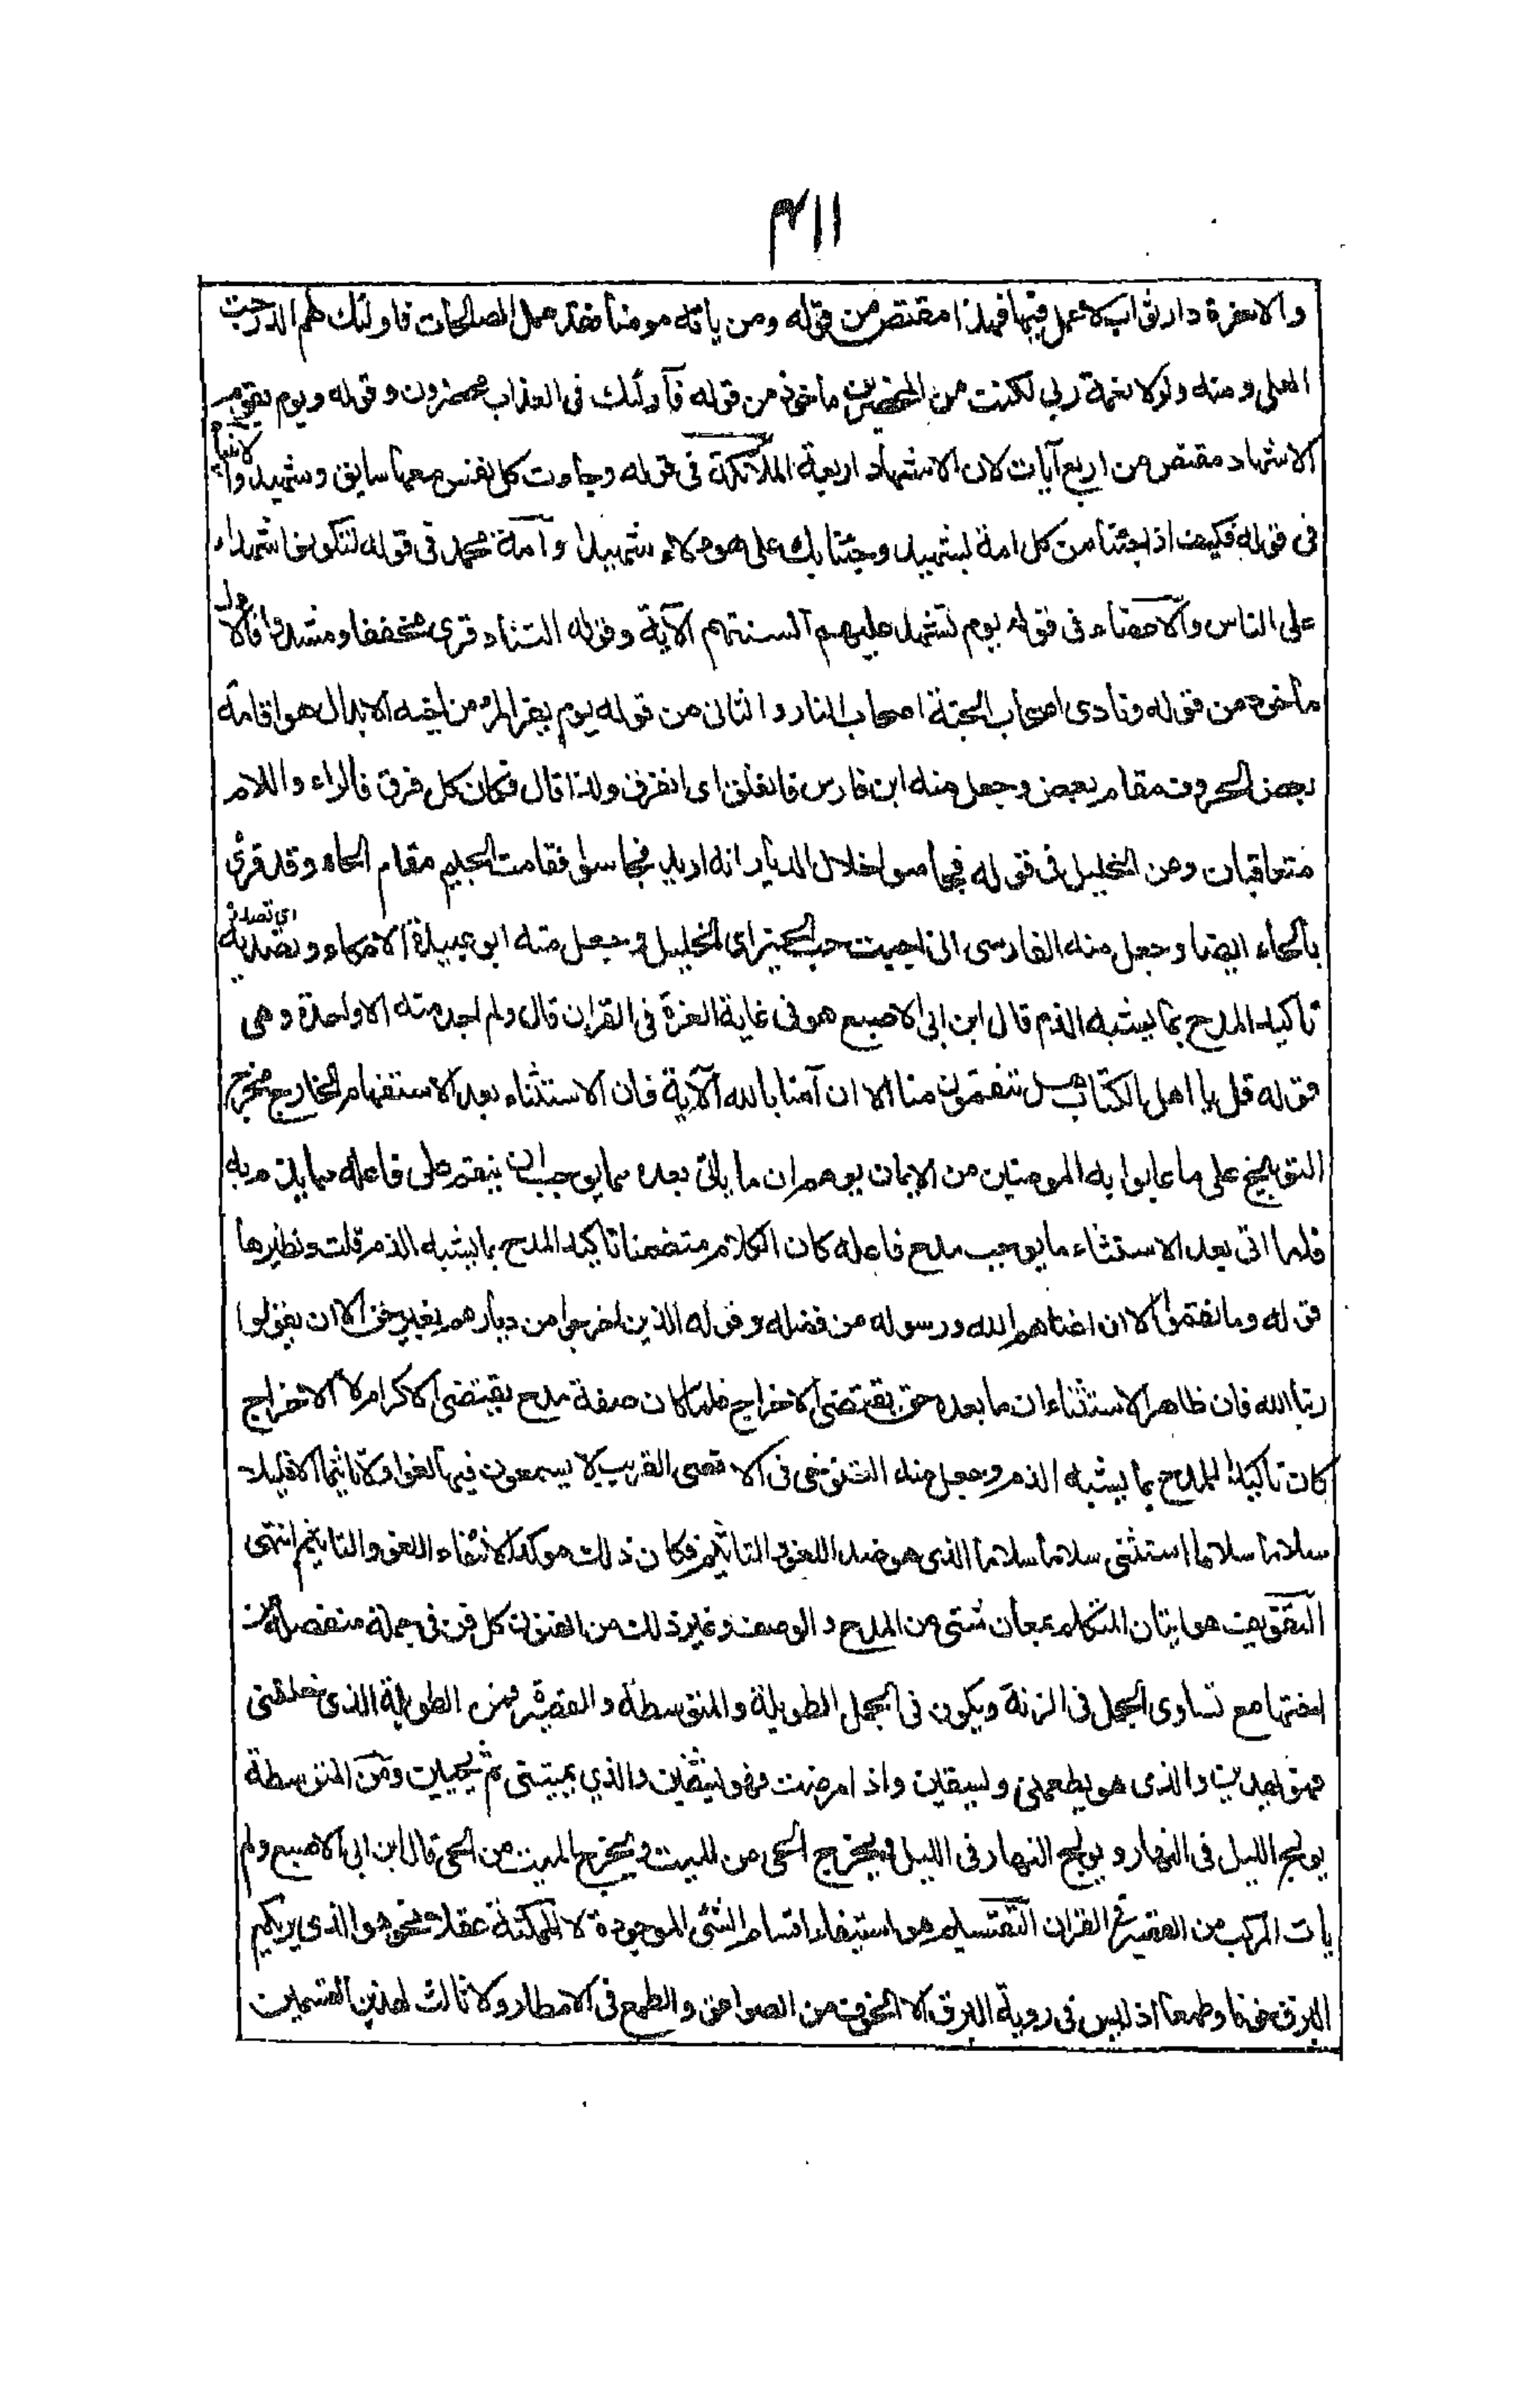 ٣١١
والاخرة دار ثواب لا عمل فيها فهذا مقتص من قوله ومن ياته مومنا قد عمل الصالحات فاولئك لهم الدرجت
العلى ومنه ولولا نعمة ربي لكنت من المحضرين ماخوذ من قوله فاولئك فى العذاب محضرون وقوله ويوم يقوم
الاشهاد مقتص من اربع آيات لان الاشهاد اربعة الملائكة فى قوله وجاءت كل نفس معها سايق وشهيد والانبيا
فى قوله فكيف اذا جئنا من كل امة بشهيد وجئنا بك على هوءلاء شهيدا وامة محمد فى قوله لتكونوا شهداء
على الناس والاعضاء فى قوله يوم تشهد عليهم السنتهم الآية وقوله التناد قرئ مخففا ومشددا فالاول
ماخوذ من قوله ونادى اصحاب الجنة اصحاب النار والثانى من قوله يوم يفر المرء من اخيه الابدال هو اقامة
بعض الحروف مقام بعض وجعل منه ابن فارس فانفلق اى انفرق ولذا قال فكان كل فرق فالراء واللام
متعاقبان وعن الخليل فى قوله فجاسوا خلال الديار انه اريد فجاسوا فقامت الجيم مقام الحاء وقد قرئ
بالحاء ايضا وجعل منه الفارسى انى احببت حب الخير اى الخيل وجعل منه ابو عبيدة الا مكاء وتصدية اى تصددة
تاكيد المدح بما يشبه الذم قال ابن ابى الاصبع هو فى غاية العزة فى القران قال ولم اجد منه الا واحدة وهى
قوله قل يا اهل الكتاب هل تنقمون منا الا ان آمنا بالله الآية فان الاستثناء بعد الاستفهام الخارج مخرج
التوبيخ على ما عابوا به المومنين من الايمان يوهم ان ما ياتى بعده مما يوجب ان ينقم على فاعله مما يذم به
فلما اتى بعد الاستثناء ما يوجب مدح فاعله كان الكلام متضمنا تاكيد المدح بما يشبه الذم قلت ونظيرها
قوله وما نقموا الا ان اغناهم الله ورسوله من فضله وقوله الذين اخرجوا من ديارهم بغير حق الا ان يقولوا
ربنا الله فان ظاهر الاستثناء ان ما بعده حق يقتضى الاخراج فلما كان صفة مدح يقتضى الاكرام لا الاخراج
كان تاكيدا للمدح بما يشبه الذم وجعل منه التنوخى فى الاقصى القريب لا يسمعون فيها لغوا ولا تاثيما الا قيلا
سلاما سلاما استثنى سلاما سلاما الذى هو ضد اللغو والتاثيم فكان ذلك موكدا لانتفاء اللغو والتاثيم انتهى
التفويف هو اتيان المتكلم بمعان شتى من المدح والوصف وغير ذلك من الفنون كل فن فى جملة منفصلة عن
اختها مع تساوى الجمل فى الزنة ويكون فى الجمل الطويلة والمتوسطة والقصيرة فمن الطويلة الذى خلقنى
فهو يهدين والذى هو يطعمنى ويسقين واذا مرضت فهو يشفين والذي يميتنى ثم يحيين ومن المتوسطة
يولج الليل فى النهار ويولج النهار فى الليل ويخرج الحى من الميت ويخرج الميت من الحى قال ابن ابى الاصبع ولم
يات المركب من القصيرة فى القران التقسيم هو استيفاء اقسام الشئ الموجودة لا الممكنة عقلا نحو هو الذى يريكم
البرق خوفا وطمعا اذ ليس فى روية البرق الا الخوف من الصواعق والطمع فى الامطار ولا ثالث لهذين القسمين